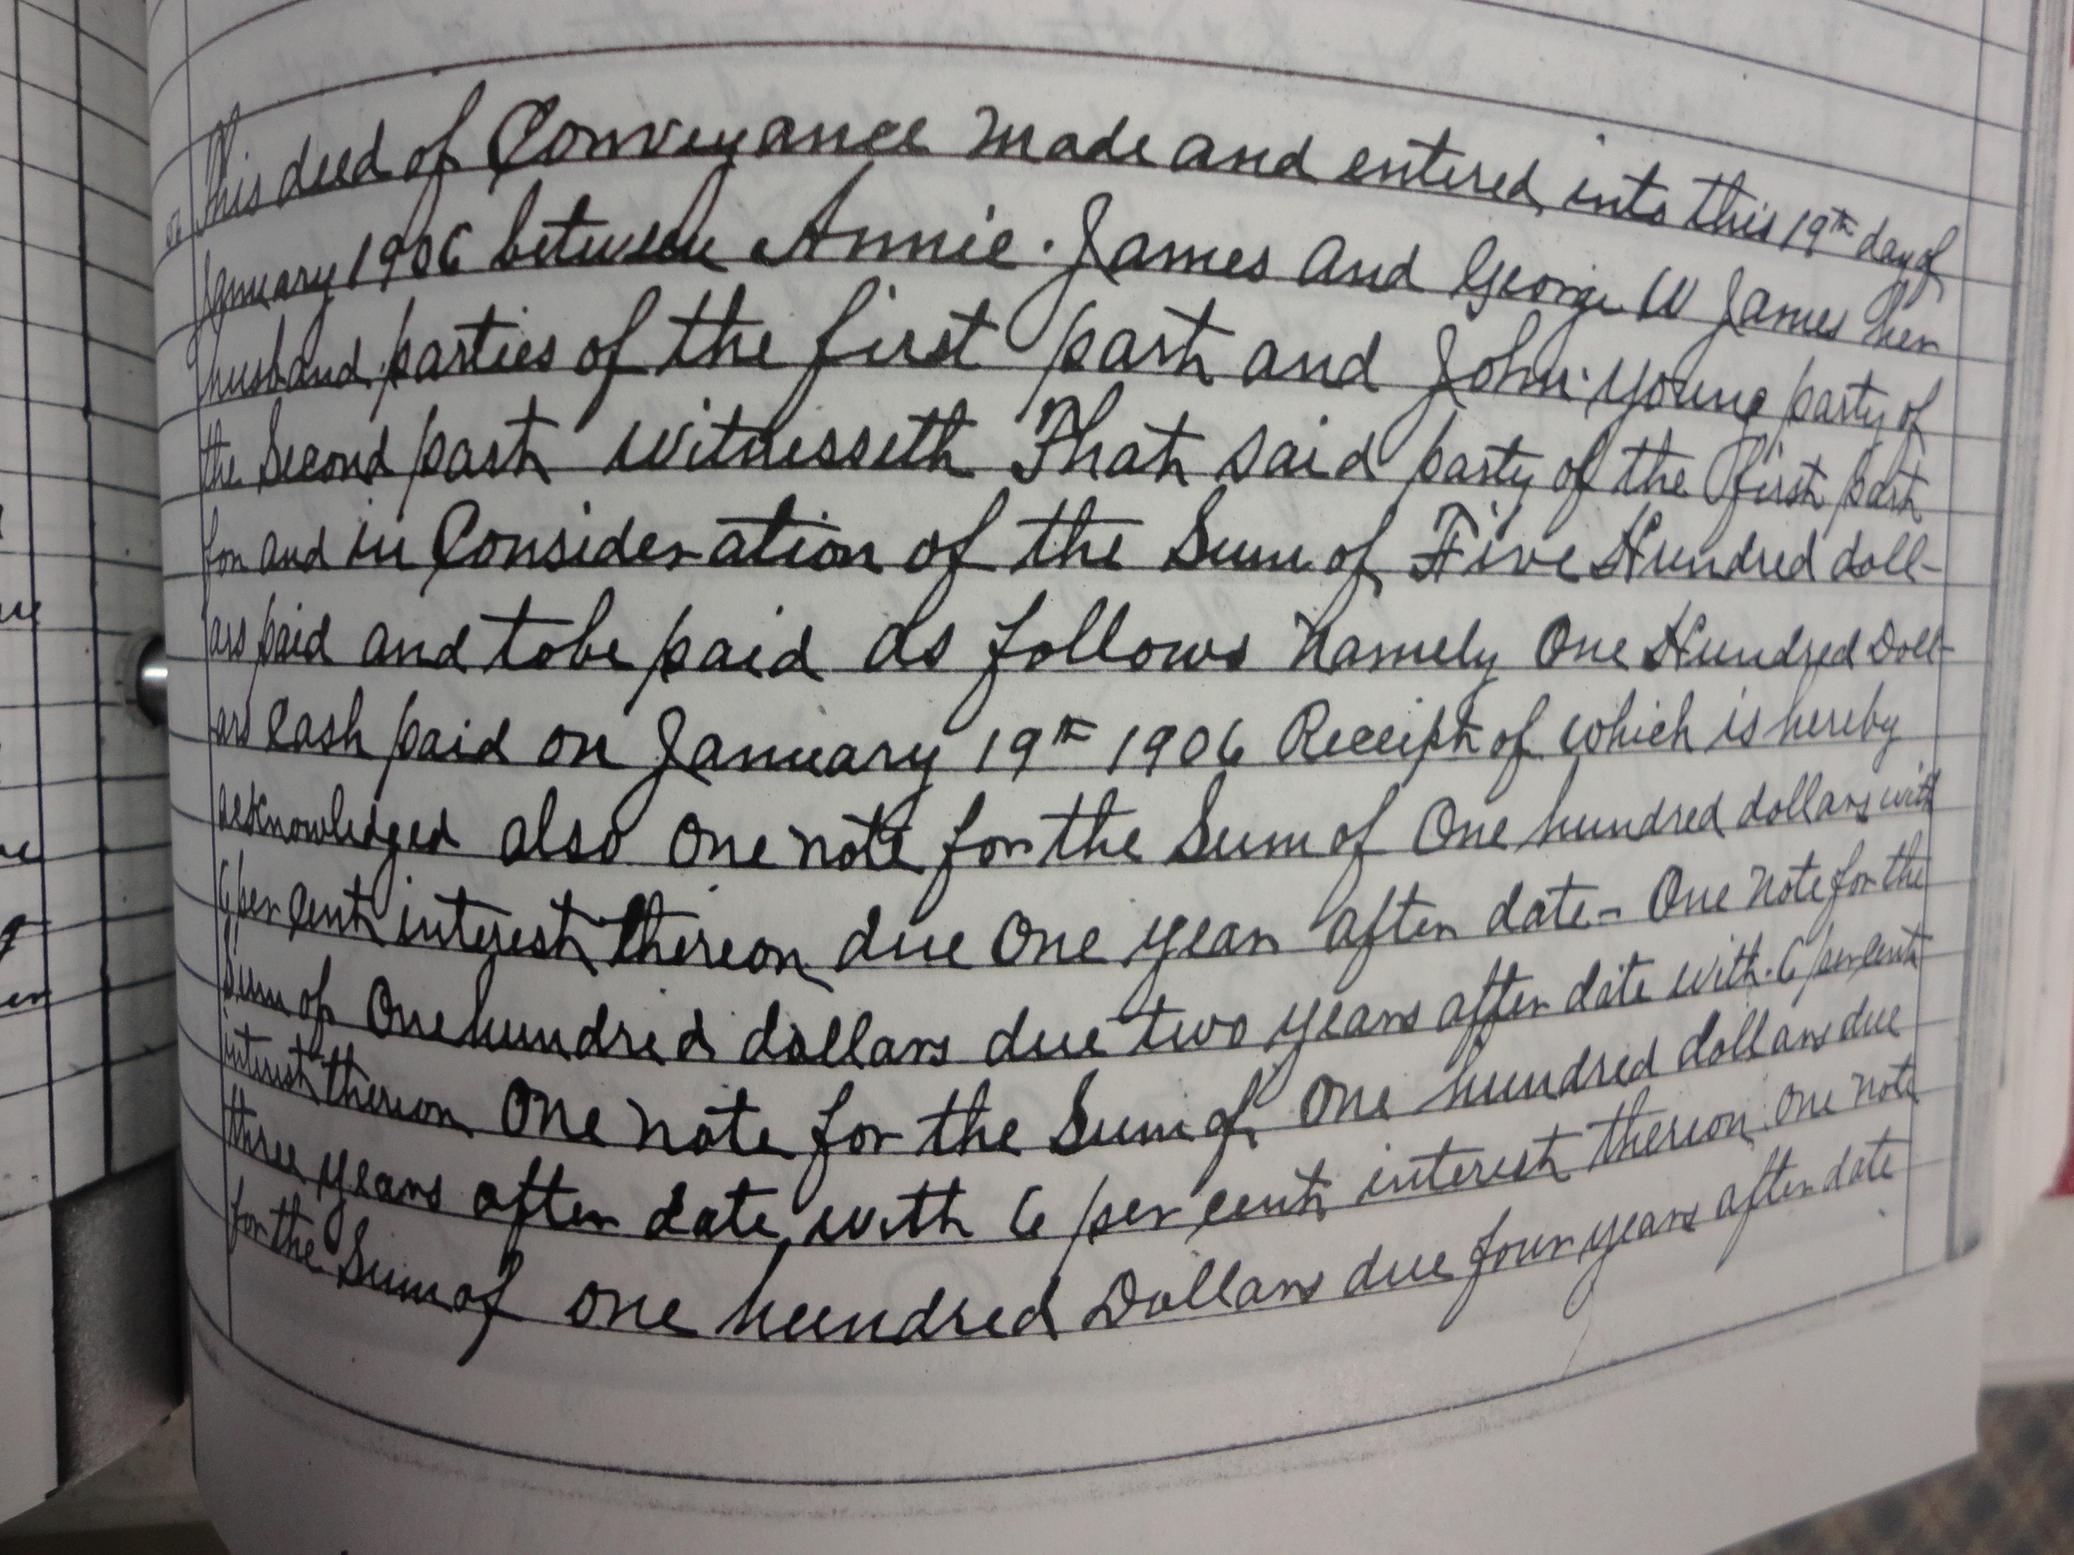 This deed of Conveyance made and entered into this 19th day of
January 1906 between Annie. James and George W James her
husband parties of the first part and John. Young party of
the Second part witnesseth That said party of the first part
for and in Consideration of the Sum of Five Hundred doll-
ars paid and tobe paid as follows Namely One Hundred Doll-
ars Cash paid on January 19th 1906 Receipt of which is hereby
acknowledged also One note for the Sum of One hundred dollars with
6 per cent interest thereon due One year after date - One note for the
Sum of One hundred dollars due two years after date with 6 per cent
interest thereon One note for the Sum of One hundred dollars due
three years after date with 6 per cent interest thereon One note
for the Sum of one hundred Dollars due four years after date